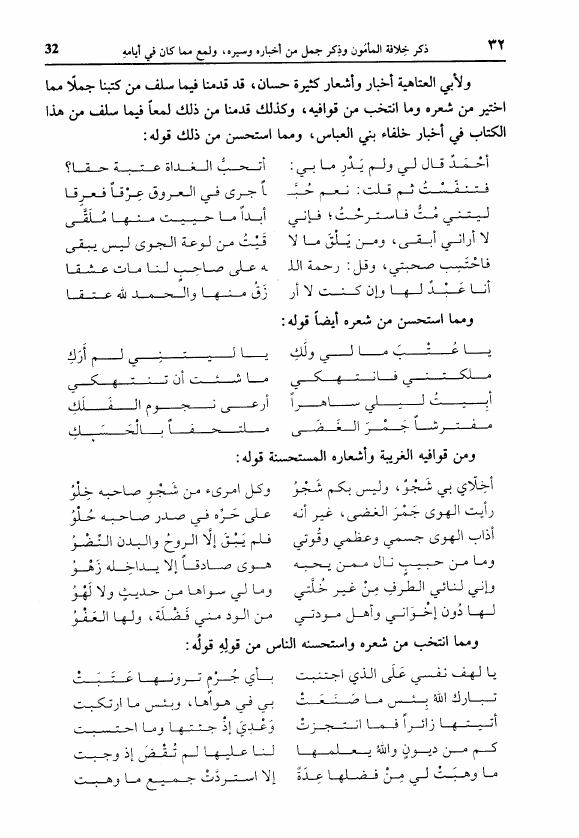 ٣٢ ذكر خِلافة المأمون وذِكر جمل من أخباره وسيره، ولمع مما كان في أيامهِ 32
ولأبي العتاهية أخبار وأشعار كثيرة حسان، قد قدمنا فيما سلف من كتبنا جملًا مما
اختير من شعره وما انتخب من قوافيه، وكذلك قدمنا من ذلك لمعاً فيما سلف من هذا
الكتاب في أخبار خلفاء بني العباس، ومما استحسن من ذلك قوله:
أحْمَدٌ قال لي ولم يَدْرِ ما بي: أتحبُّ الغداة عتبة حقا؟
فتنفّسْتُ ثم قلت: نعم حُبَّـ ـاً جرى في العروق عِرْقاً فعِرقا
ليتني مُتُّ فاسترحْتُ؛ فإني أبداً ما حييت منها مُلَقَّى
لا أراني أبقى، ومن يَلْقَ ما لا قَيْتُ من لوعة الجوى ليس يبقى
فاحْتَسِب صحبتي، وقل: رحمة اللـ ـه على صاحبٍ لنا مات عشقا
أنا عَبْدٌ لها وإن كنت لا أر زَقُ منها والحمد لله عتقا
ومما استحسن من شعره أيضاً قوله:
يا عُتْبَ ما لي ولَكِ يا ليتني لم أرَكِ
ملكتني فانتهكي ما شئت أن تنتهكي
أبيتُ ليلي ساهراً أرعى نجوم الفَلَكِ
مفترشاً جَمْرَ الغَضَى ملتحفاً بالْحَسَكِ
ومن قوافيه الغريبة وأشعاره المستحسنة قوله:
أخِلّاي بي شَجْوٌ، وليس بكم شَجْوُ وكل امرىء من شَجْوِ صاحبه خِلْوُ
رأيت الهوى جَمْرَ الغضى، غير أنه على حَرِّه في صدر صاحبه حُلْوُ
أذاب الهوى جسمي وعظمي وقُوتي فلم يَبْقَ إلّا الروحُ والبدن النِّضْوُ
وما من حبيبٍ نال ممن يحبه هوى صادقاً إلا يداخله زَهْوُ
وإني لنائي الطرفِ مِنْ غير خُلَّتي وما لي سواها من حديثٍ ولا لَهْوُ
لها دُون إخْوَاني وأهل مودتي من الود مني فَضْلَة، ولها العَفْوُ
ومما انتخب من شعره واستحسنه الناس من قولِهِ قولُه:
يا لهف نفسي عَلَى الذي اجتنبت بأي جُرْمٍ ترونها عَتَبَتْ
تبارك اللهُ بِئس ما صَنَعَتْ بي في هواها، وبئس ما ارتكبت
أتيتها زائراً فما انتجزتْ وَعْدِيَ إذْ جئتها وما احتسبت
كم من ديونٍ واللهُ يعلمها لنا عليها لم تُقْضَ إذ وجبت
ما وهبَتْ لي مِنْ فضلها عِدَةً إلا استردَّتْ جميع ما وهبت